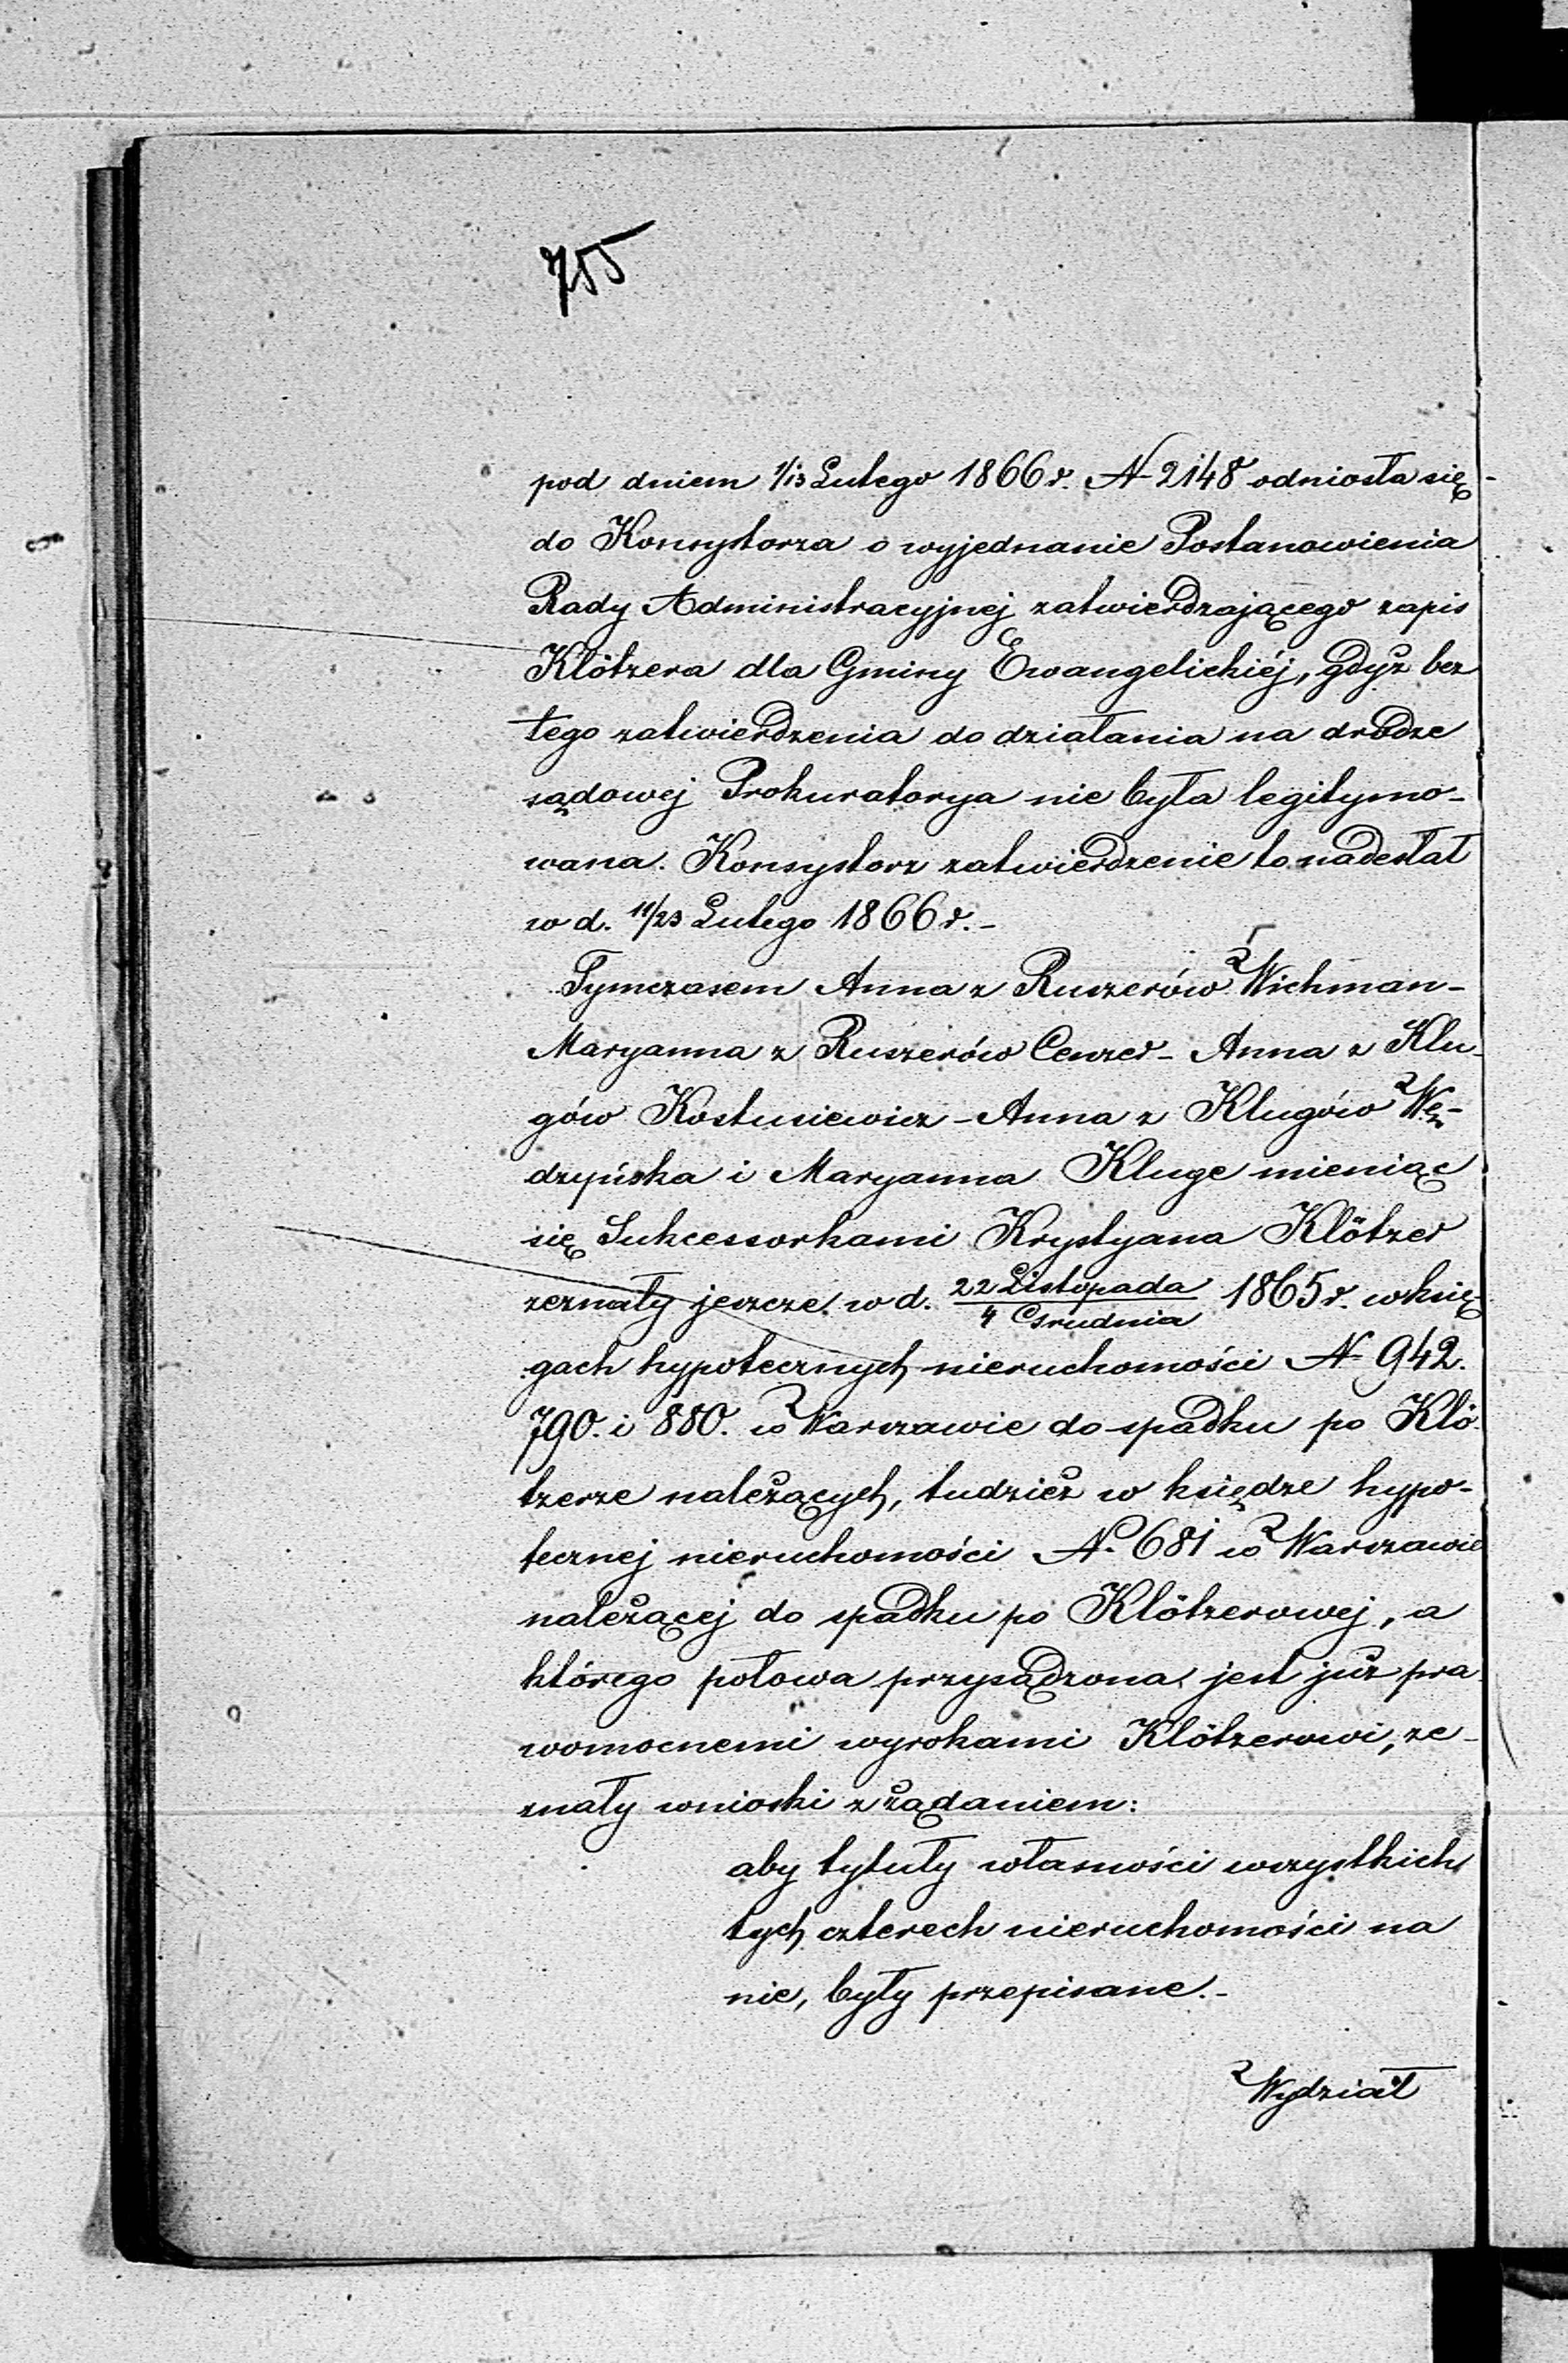 755
pod dniem 1/13 Lutego 1866 r. N 2148 odniosła się
do Konsystorza o wyjednanie Postanowienia
Rady Administracyjnej zatwierdzającego zapis
Klötzera dla Gminy Ewangelickiéj, gdyż bez
tego zatwierdzenia do działania na drodze
sądowej Prokuratorya nie była legitymo-
wana. Konsystorz zatwierdzenie to nadesłał
w d. 11/23 Lutego 1866 r. -
Tymczasem Anna z Ruszerów Wichman -
Maryanna z Ruszerów Cenzer - Anna z Klu-
gów Kostusiewicz - Anna z Klugów Wę-
dzyńska i Maryanna Kluge mieniąc
się Sukcessorkami Krystyana Klötzer
zeznały jeszcze w d. 22 Listopada / 4 Grudnia 1865 r. w księ-
gach hypotecznych nieruchomości N 942.
790. i 880. w Warszawie do spadku po Klö-
tzerze należących, tudzież w księdze hypo-
tecznej nieruchomości N. 681 w Warszawie
należącej do spadku po Klötzerowej, a
którego połowa przysądzona jest już pra
womocnemi wyrokami Klötzerowi, ze-
znały wnioski z żądaniem:
aby tytuły własności wszystkich
tych czterech nieruchomości na
nie, były przepisane. -
Wydział